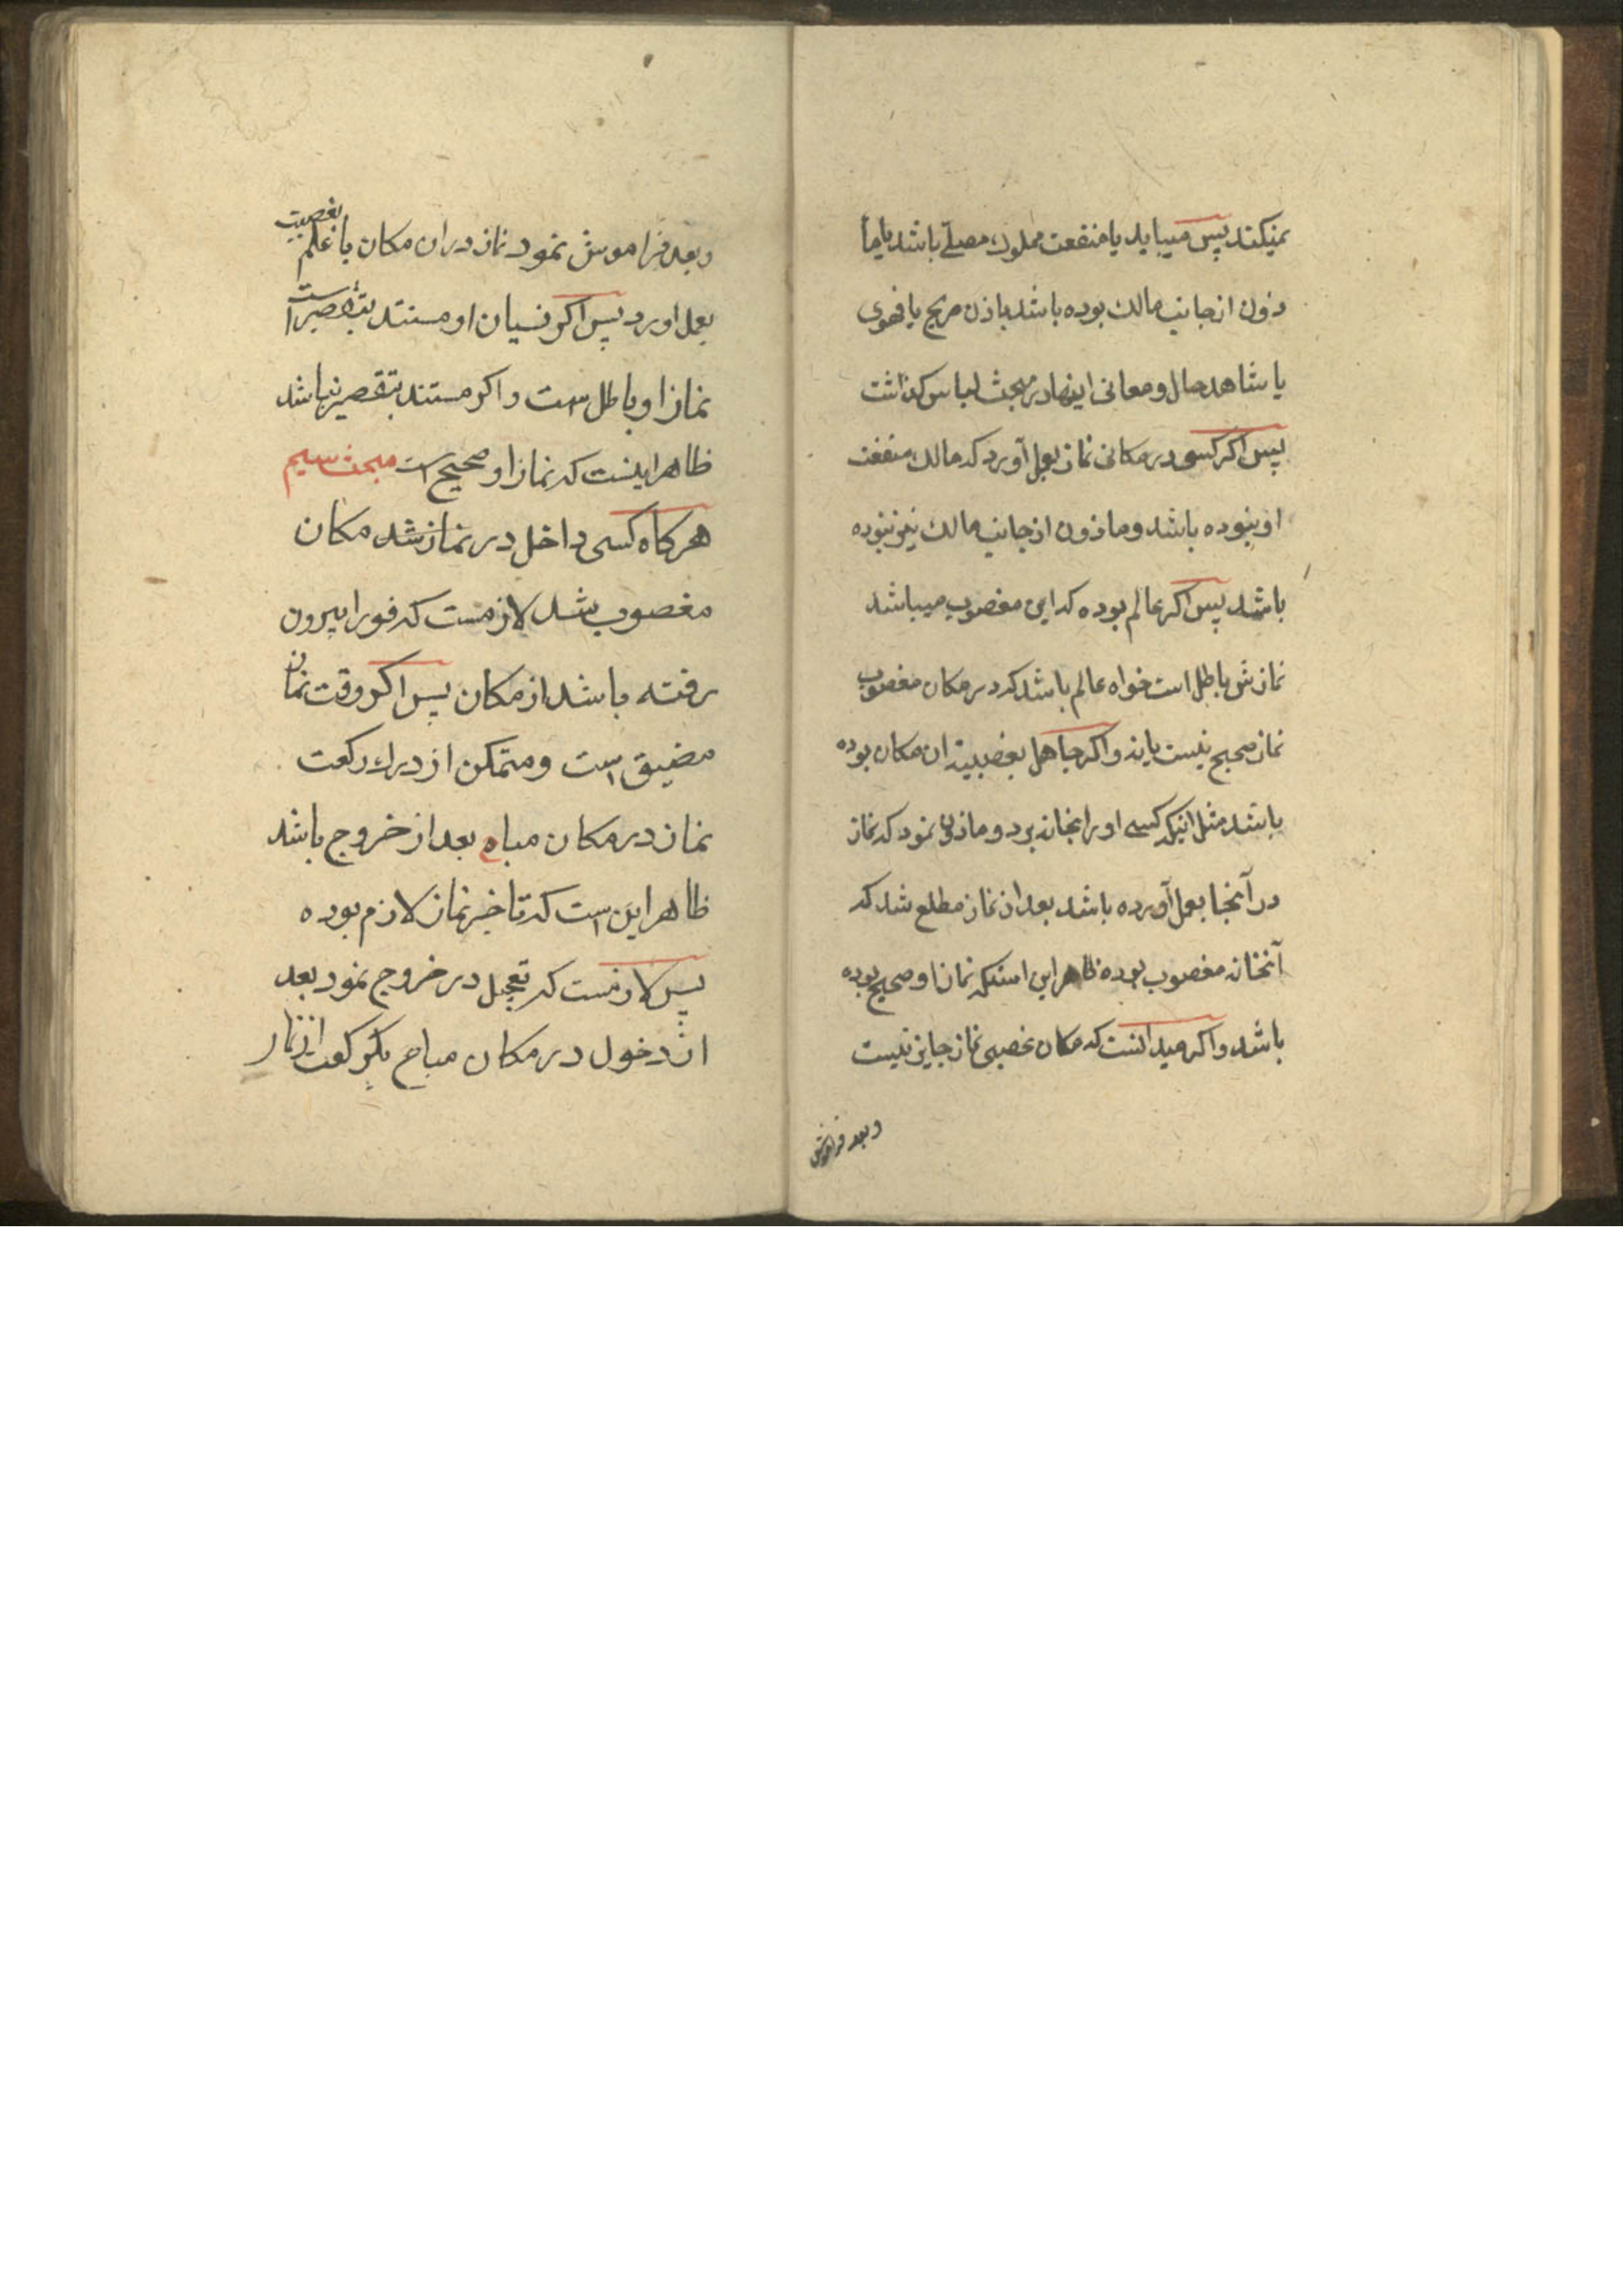 نمیکند پس میباید یا منفعت مملوك مصلّے باشد یا ما
ذون از جانب مالك بوده باشد باذن صریح یا فحوی
یا شاهد حال و معانی اینها در مبحث لباس کذاشت
پس اکر کسی در مکانی نماز بعمل آورد که مالك منفعت
او نبوده باشد و ماذون از جانب مالك نیز نبوده
باشد پس اکر عالم بوده که این مغصوب میباشد
نمازش باطل است خواه عالم باشد که در مکان مغصوب
نماز صحیح نیست یا نه و اکر جاهل بغصبیت ان مکان بوده
باشد مثل اینکه کسی او را بخانه برد و ماذون نمود که نماز
در آنجا بعمل آورده باشد بعد از نماز مطلع شد که
آنخانه مغصوب بوده ظاهر این استکه نماز او صحیح بوده
باشد و اکر میدانست که مکان غصبی نماز جایز نیست
و بعد فراموش
و بعد فراموش نمود نماز در ان مکان با علم بغصبیت
بعمل اورد پس اکر نسیان او مستند بتقصیر است
نماز او باطل است و اکر مستند بتقصیر نباشد
ظاهر اینست که نماز او صحیح است مبحث سیم
هرکاه کسی داخل در نماز شد مکان
مغصوب شد لازمست که فورا بیرون
رفته باشد از مکان پس اکر وقت نماز
مضیق است و متمکن از درك رکعت
نماز در مکان مباح بعد از خروج باشد
ظاهر این است که تاخیر نماز لازم بوده
پس لازمست که تعجیل در خروج نمود بعد
از دخول در مکان مباح یکرکعت از نماز